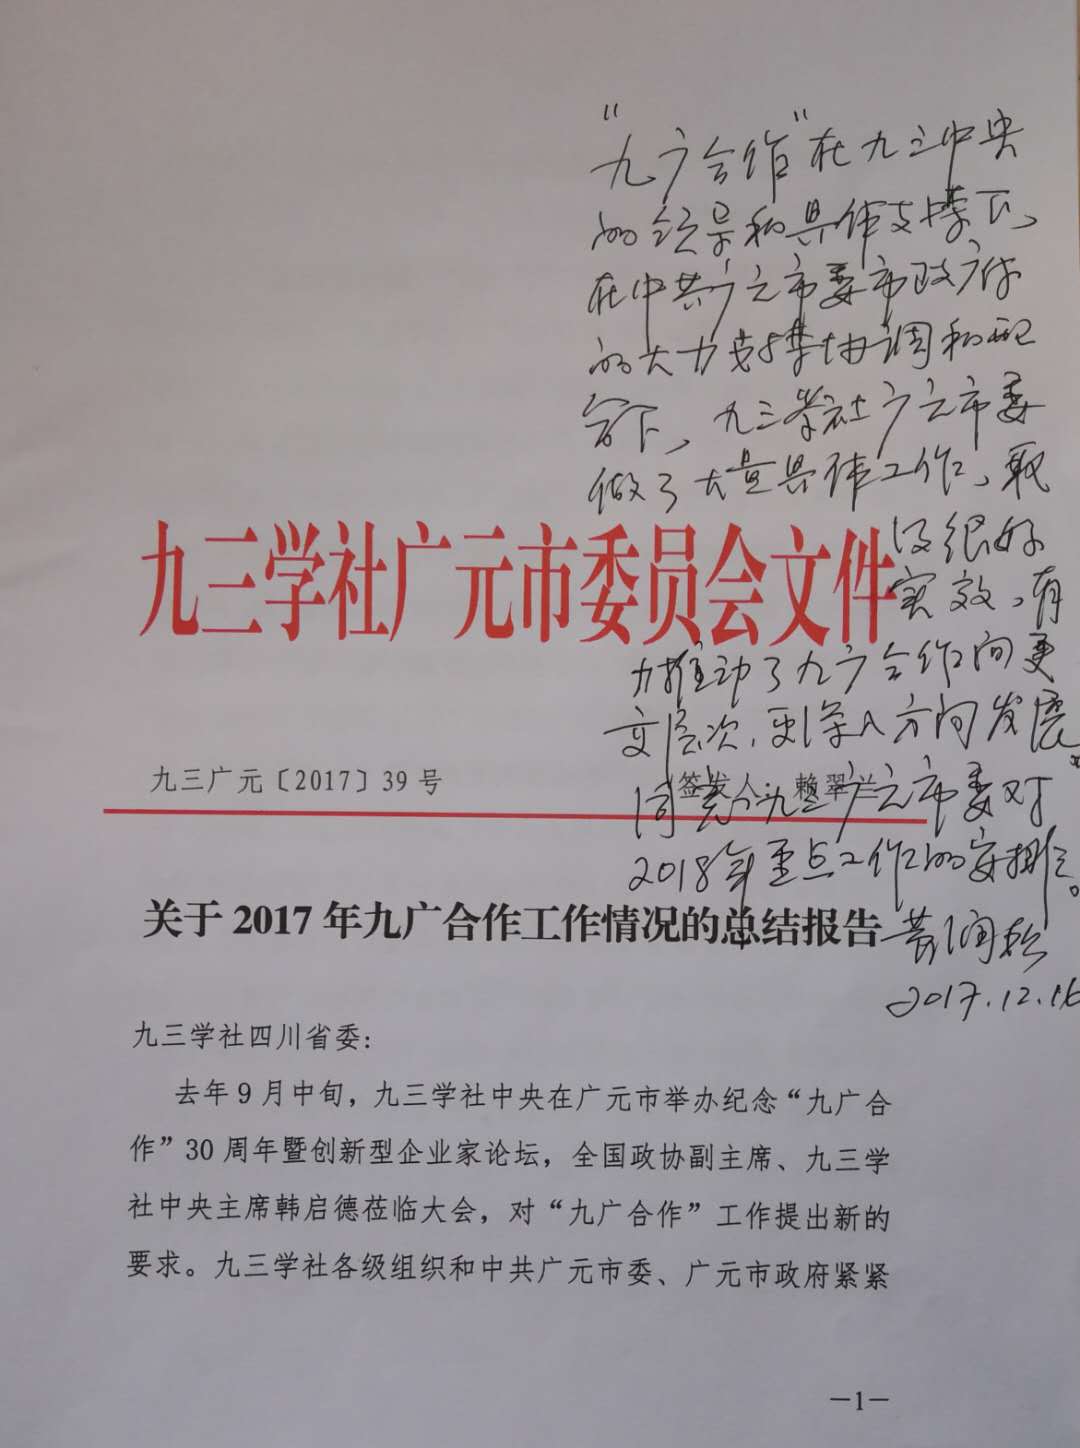 “九广合作”在九三中央
的领导和具体支撑下、
在中共广元市委市政府
的大力支撑协调和配
合下，九三学社广元市委
做了大量具体工作、取
得很好
实效，有
力推动了九广合作向更
高层次、更深入方向发展。
同意九三广元市委对
2018年重点工作的安排。
黄润秋
2017.12.16
九三学社广元市委员会文件
九三广元〔2017〕39 号
签发人：赖翠兰
关于 2017 年九广合作工作情况的总结报告
九三学社四川省委：
去年 9 月中旬，九三学社中央在广元市举办纪念“九广合
作”30 周年暨创新型企业家论坛，全国政协副主席、九三学
社中央主席韩启德莅临大会，对“九广合作”工作提出新的
要求。九三学社各级组织和中共广元市委、广元市政府紧紧
—1—